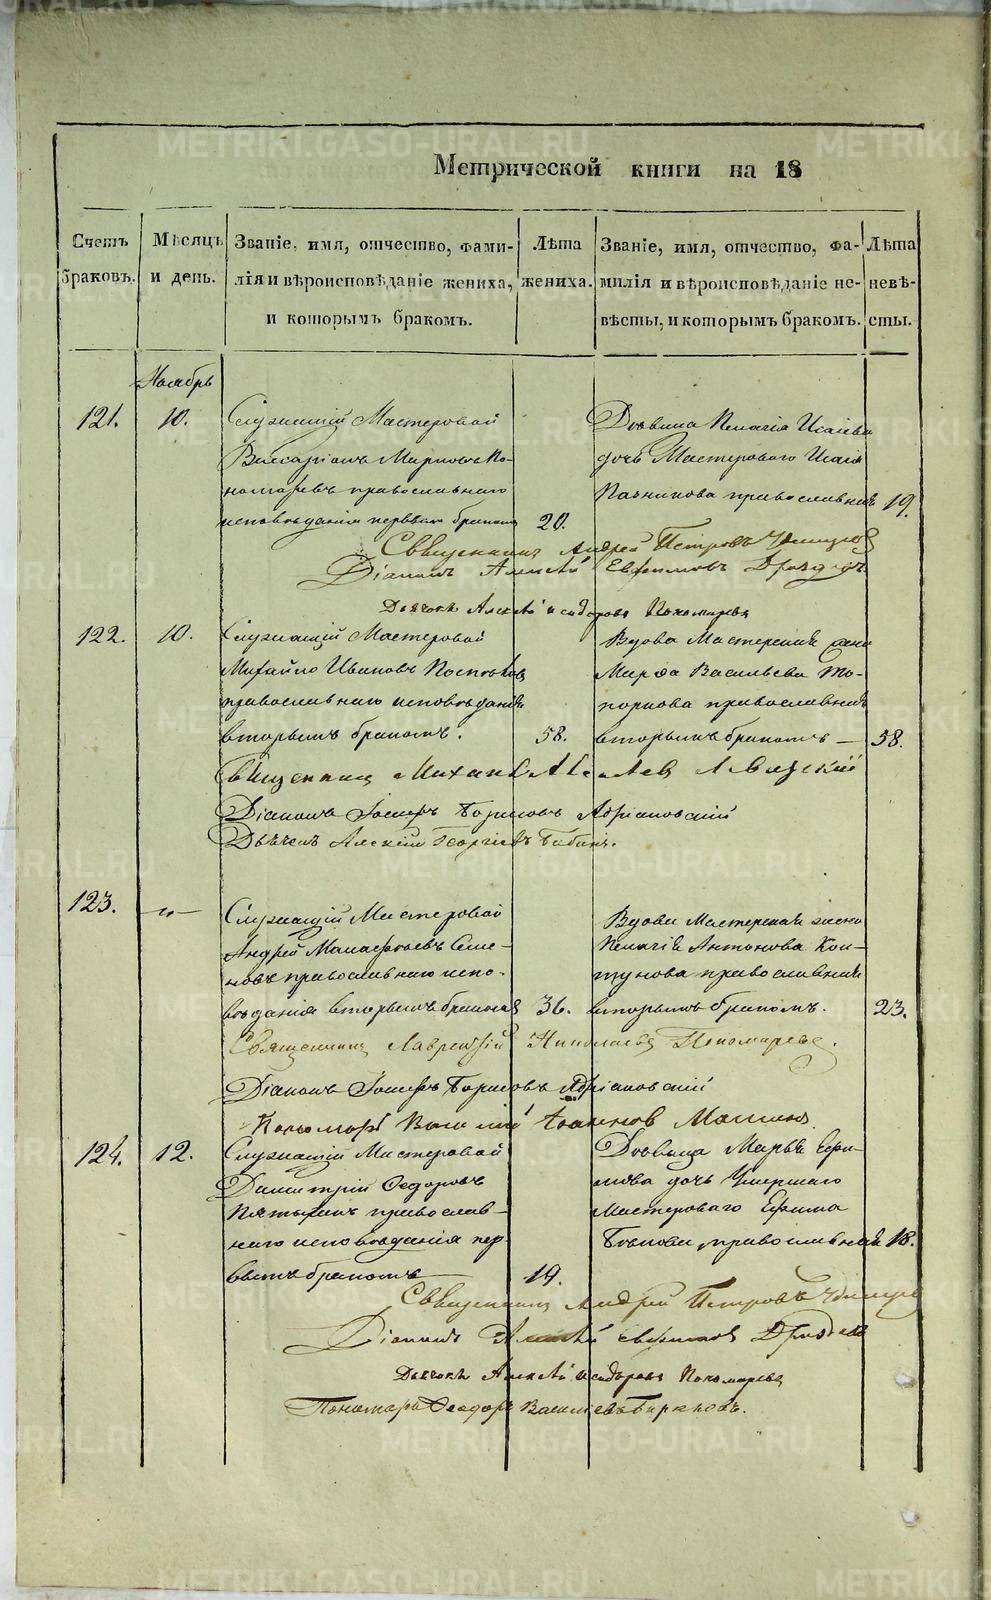 Метрической книги на 18
Счетъ браковъ.
Мѣсяцъ и день.
Званіе, имя, отчество, фами-
лія и вѣроисповѣданіе жениха,
и которымъ бракомъ.
Лѣта
жениха.
Званіе, имя, отчество, фа-
милія и вѣроисповѣданіе не-
вѣсты, и которымъ бракомъ.
Лѣта
невѣ-
сты.
Ноябрь
121. 10.
Служащій Мастеровой
Виссаріонъ Марковъ По-
номаревъ православнаго
исповѣданія первымъ бракомъ
20.
Дѣвица Пелагія Исаіева
дочь Мастероваго Исаія
православная
19.
Священникъ Андрей Петровъ
Діаконъ Алексѣй Евфимовъ
Дьячокъ Алексѣй Исидоровъ Пономаревъ
122. 10.
Служащій Мастеровой
Михайло Ивановъ
православнаго исповѣданія
вторымъ бракомъ.
58.
Вдова Мастерская жена
Марфа Васильева То-
поркова православная
вторымъ бракомъ
58.
Священникъ Михаилъ
Діаконъ Іосифъ Борисовъ Адріановскій
Дьячекъ Алексій Георгіевъ Бабинъ.
123. -"-
Служащій Мастеровой
Андрей Семе-
новъ православнаго испо-
вѣданія вторымъ бракомъ
36.
Вдова Мастерская жена
Пелагія Антонова Кол-
тунова православная
вторымъ бракомъ.
23.
Священникъ Лаврентій Николаевъ Пономаревъ.
Діаконъ Іосифъ Борисовъ Адріановскій
Пономарь Василій Іоанновъ
124. 12.
Служащій Мастеровой
Димитрій Ѳедоровъ
православ-
наго исповѣданія пер-
вымъ бракомъ
19.
Дѣвица Марья Ефи-
мова дочь Умершаго
Мастероваго Ефима
православная
18.
Священникъ Андрей Петровъ
Діаконъ Алексѣй Евфимовъ
Дьячокъ Алексѣй Исидоровъ Пономаревъ
Пономарь Ѳеодоръ Васильевъ Бирюковъ.
METRIKI.GASO-URAL.RU